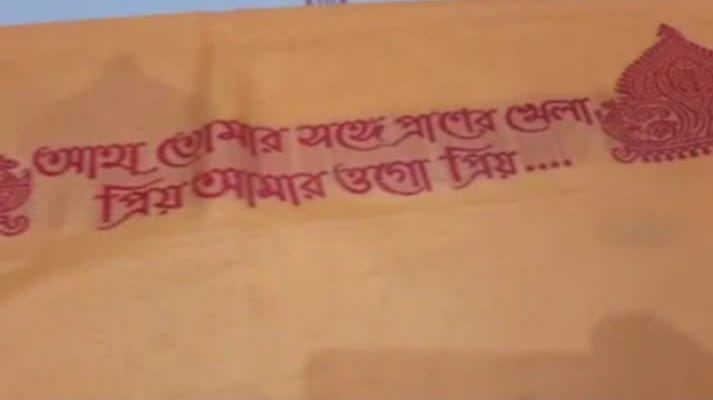 আজ তোমার সঙ্গে প্রাণের খেলা
প্রিয় আমার ওগো প্রিয়....